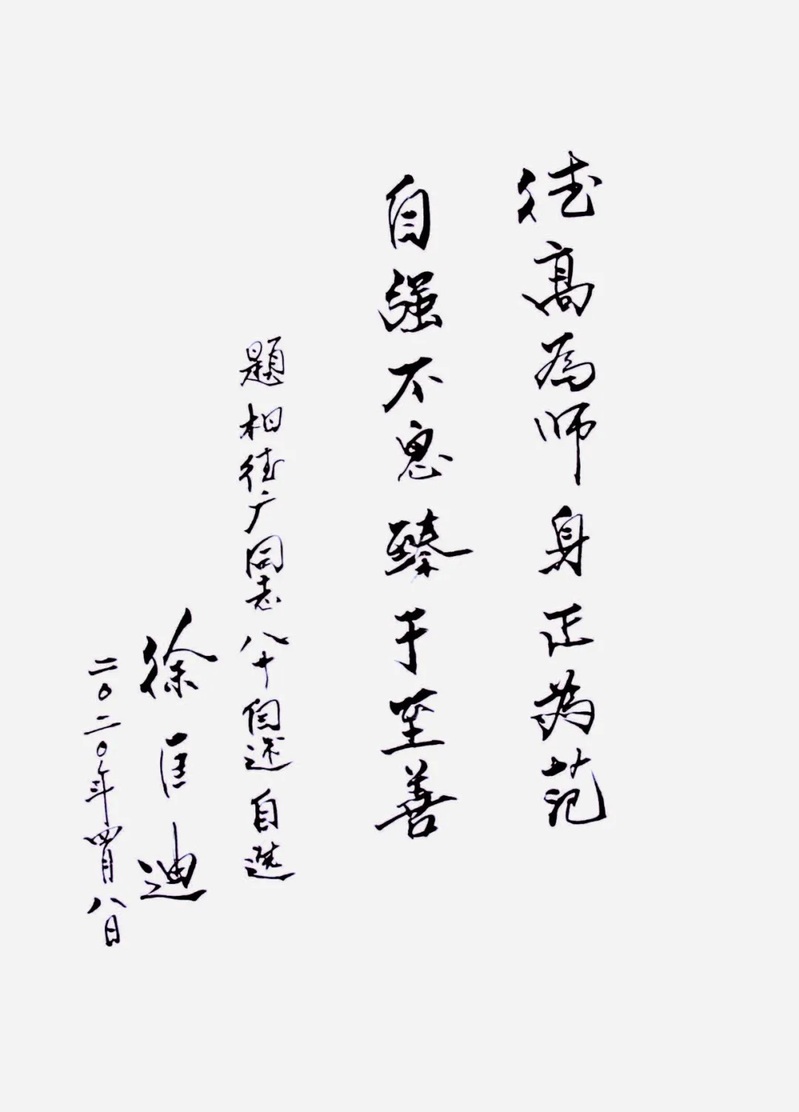 德高为师身正为范
自强不息臻于至善
题相德广同志八十自述自选
徐匡迪
二〇二〇年四月八日